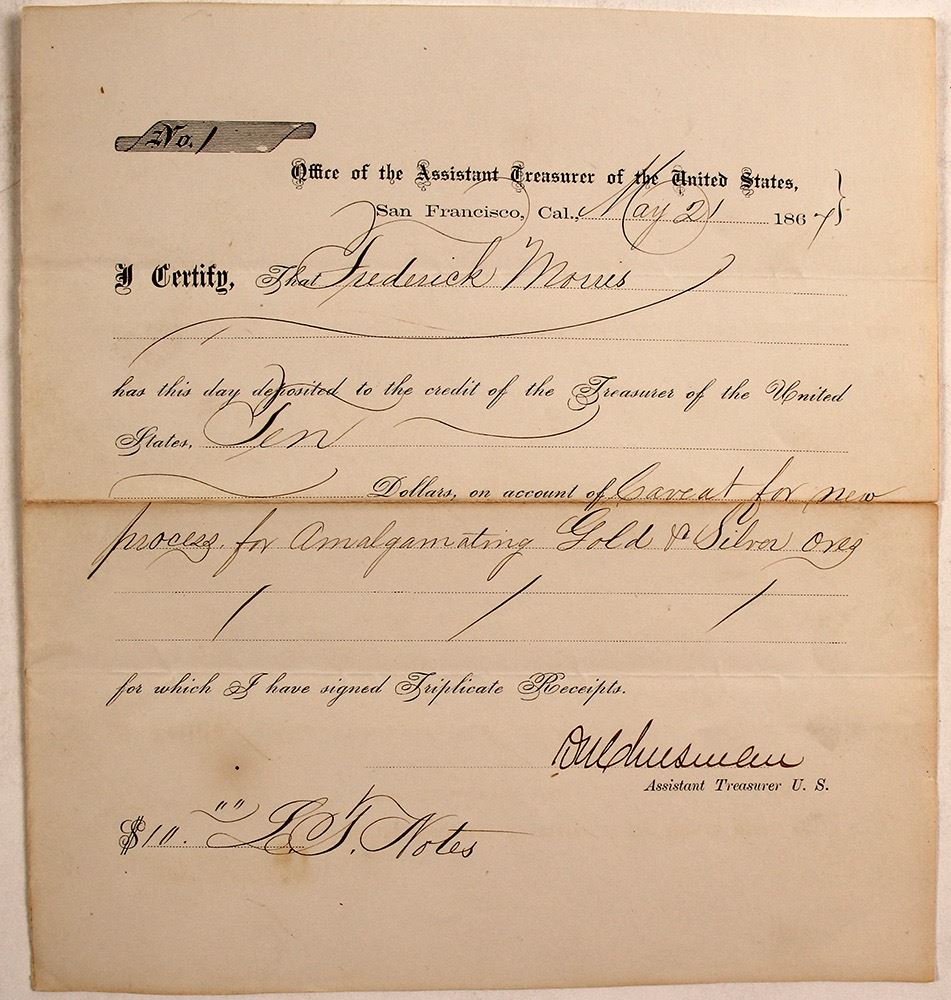 No. 1
Office of the Assistant Treasurer of the United States,
San Francisco, Cal., May 21 1867
I Certify, That Frederick Morris
has this day deposited to the credit of the Treasurer of the United
States, Ten
Dollars, on account of Caveat for new
process for Amalgamating Gold & Silver Ores
for which I have signed Triplicate Receipts.
Assistant Treasurer U. S.
$10. "" L. T. Notes